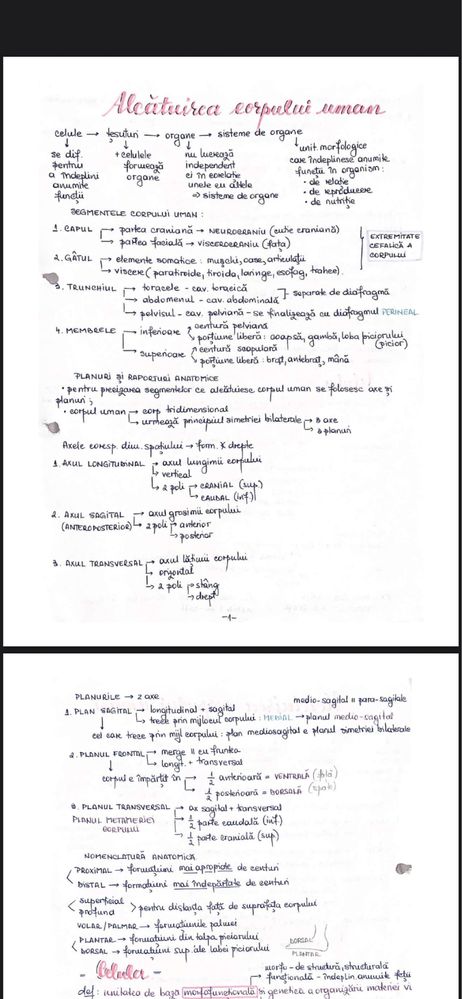 Alcătuirea corpului uman
celule → țesuturi → organe → sisteme de organe
se dif. pentru a îndeplini anumite funcții
+ celulele formează organe
nu lucrează independent ci în corelație unele cu altele ⇒ sisteme de organe
unit. morfologice care îndeplinesc anumite funcții în organism:
• de relație
• de reproducere
• de nutriție
SEGMENTELE CORPULUI UMAN:
1. CAPUL → partea craniană → NEUROCRANIU (cutie craniană)
→ partea facială → VISCEROCRANIU (fața)
EXTREMITATE CEFALICĂ A CORPULUI
2. GÂTUL → elemente somatice: mușchi, oase, articulații
→ viscere (paratiroide, tiroida, laringe, esofag, trahee).
3. TRUNCHIUL → toracele - cav. toracică
→ abdomenul - cav. abdominală
] separate de diafragmă
→ pelvisul - cav. pelviană - se finalizează cu diafragmul PERINEAL
4. MEMBRELE → inferioare
centură pelviană
porțiune liberă: coapsă, gambă, laba piciorului (picior)
→ superioare
centură scapulară
porțiune liberă: braț, antebraț, mână
PLANURI ȘI RAPORTURI ANATOMICE
• pentru precizarea segmentelor ce alcătuiesc corpul uman se folosesc axe și
planuri;
• corpul uman → corp tridimensional
→ urmează principiul simetriei bilaterale → 3 axe
→ 3 planuri
Axele coresp. dim. spațiului → form. ∢ drepte
1. AXUL LONGITUDINAL → axul lungimii corpului
→ vertical
→ 2 poli → CRANIAL (sup.)
→ CAUDAL (inf.)
2. AXUL SAGITAL → axul grosimii corpului
(ANTEROPOSTERIOR) → 2 poli → anterior
→ posterior
3. AXUL TRANSVERSAL → axul lățimii corpului
→ orizontal
→ 2 poli → stâng
→ drept
-1-
PLANURILE → 2 axe
medio-sagital || para-sagitale
1. PLAN SAGITAL → longitudinal + sagital
→ trece prin mijlocul corpului: MEDIAL → planul medio-sagital
cel care trece prin mijl corpului: plan mediosagital e planul simetriei bilaterale
2. PLANUL FRONTAL → merge || cu fruntea
→ longit. + transversal
corpul e împărțit în → 1/2 anterioară = VENTRALĂ (față)
→ 1/2 posterioară = DORSALĂ (spate)
3. PLANUL TRANSVERSAL → ax sagital + transversal
PLANUL METAMERIEI CORPULUI
→ 1/2 parte caudală (inf.)
→ 1/2 parte cranială (sup)
NOMENCLATURĂ ANATOMICĂ
PROXIMAL → formațiuni mai apropiate de centuri
DISTAL → formațiuni mai îndepărtate de centuri
superficial
profund
> pentru distanța față de suprafața corpului
VOLAR/PALMAR → formațiunile palmei
PLANTAR → formațiuni din talpa piciorului
DORSAL → formațiuni sup. ale labei piciorului
DORSAL
PLANTAR
- Celula -
morfo - de structură, structurală
funcțională - îndeplin. anumite fcții
def: unitatea de bază morfofuncțională și genetică a organizării materiei vi